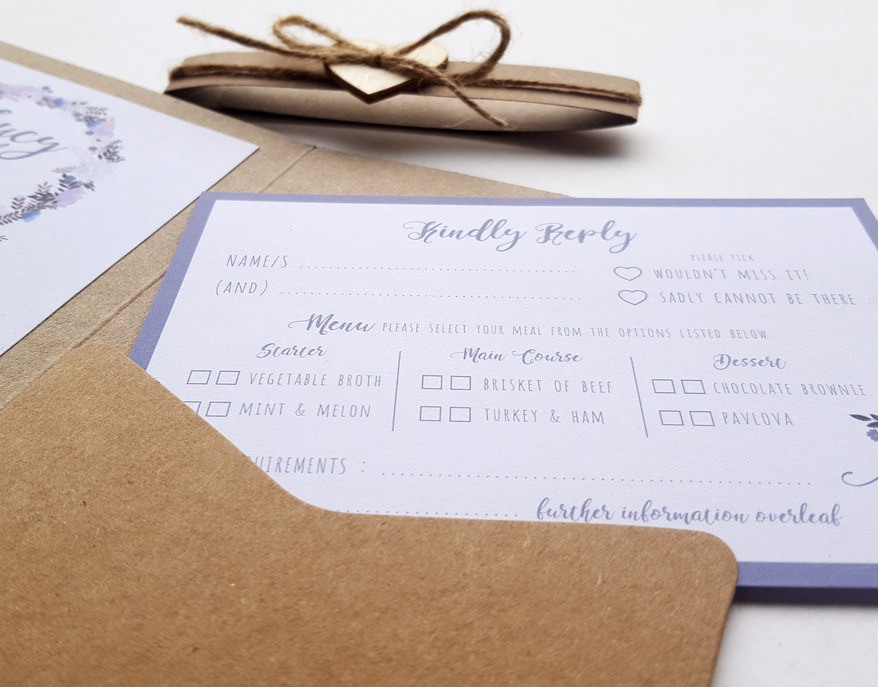 Kindly Reply
NAME/S
(AND)
PLEASE TICK
WOULDN'T MISS IT!
SADLY CANNOT BE THERE
Menu PLEASE SELECT YOUR MEAL FROM THE OPTIONS LISTED BELOW
Starter
VEGETABLE BROTH
MINT & MELON
Main Course
BRISKET OF BEEF
TURKEY & HAM
Dessert
CHOCOLATE BROWNIE
PAVLOVA
UIREMENTS :
further information overleaf